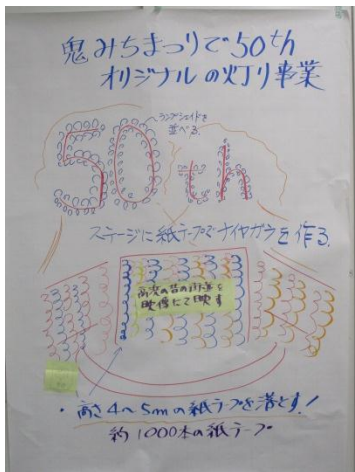 鬼みちまつりで50th
オリジナルの灯り事業
ランプシェイドを
並べる
50th
ステージに紙テープでナイヤガラを作る
高次の昔の街道を
映像にて映す
・高さ4〜5mの紙テープを落とす!
約1000本の紙テープ